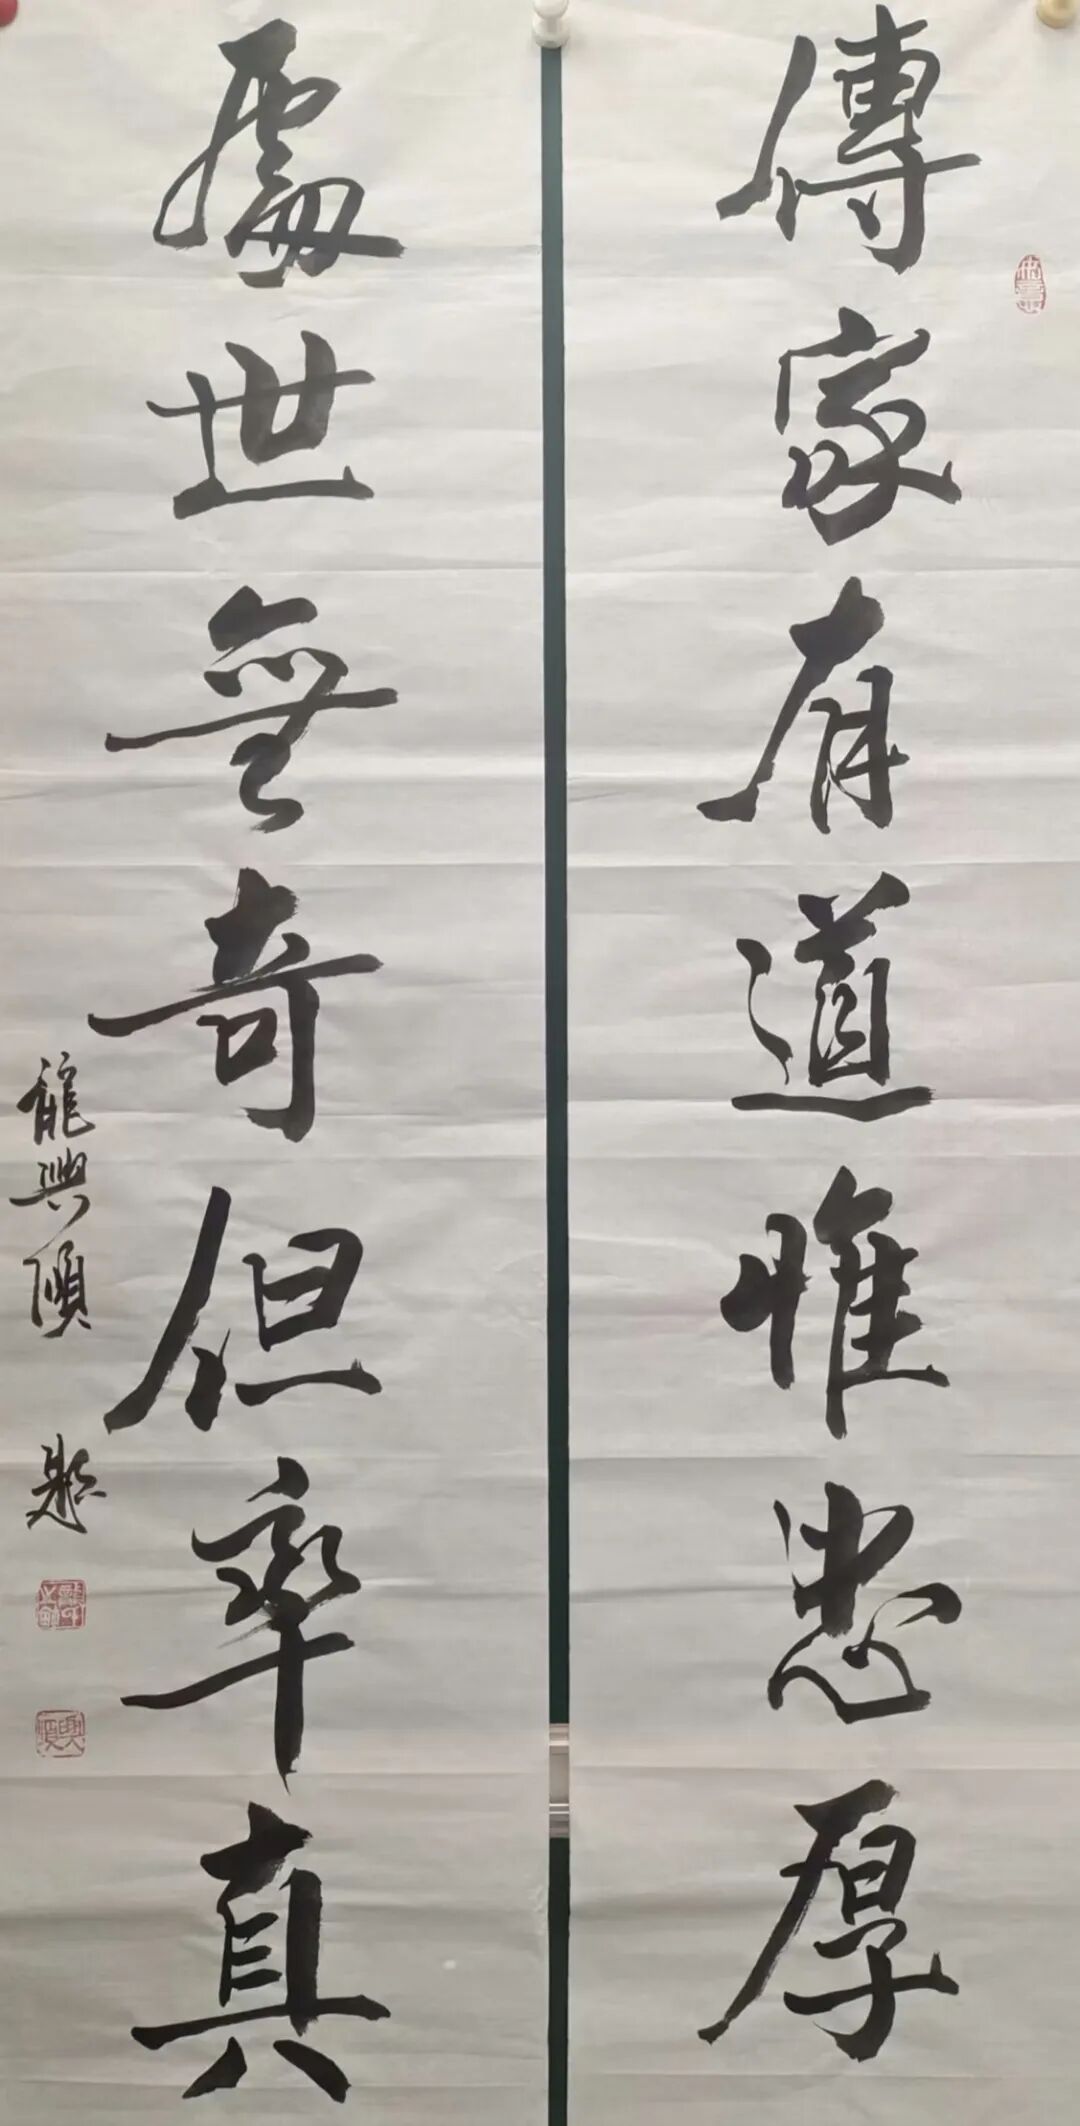 傳家有道惟忠厚
處世無奇但率真
龍興順 題